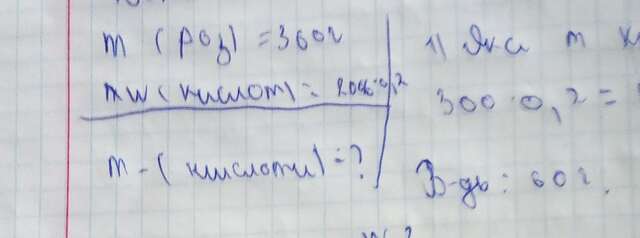 m (роз) = 300г
w (кислот) = 20% 0,2
m - (кислоти) = ?
1) Яка m
300 · 0,2 =
В-дь: 60г.